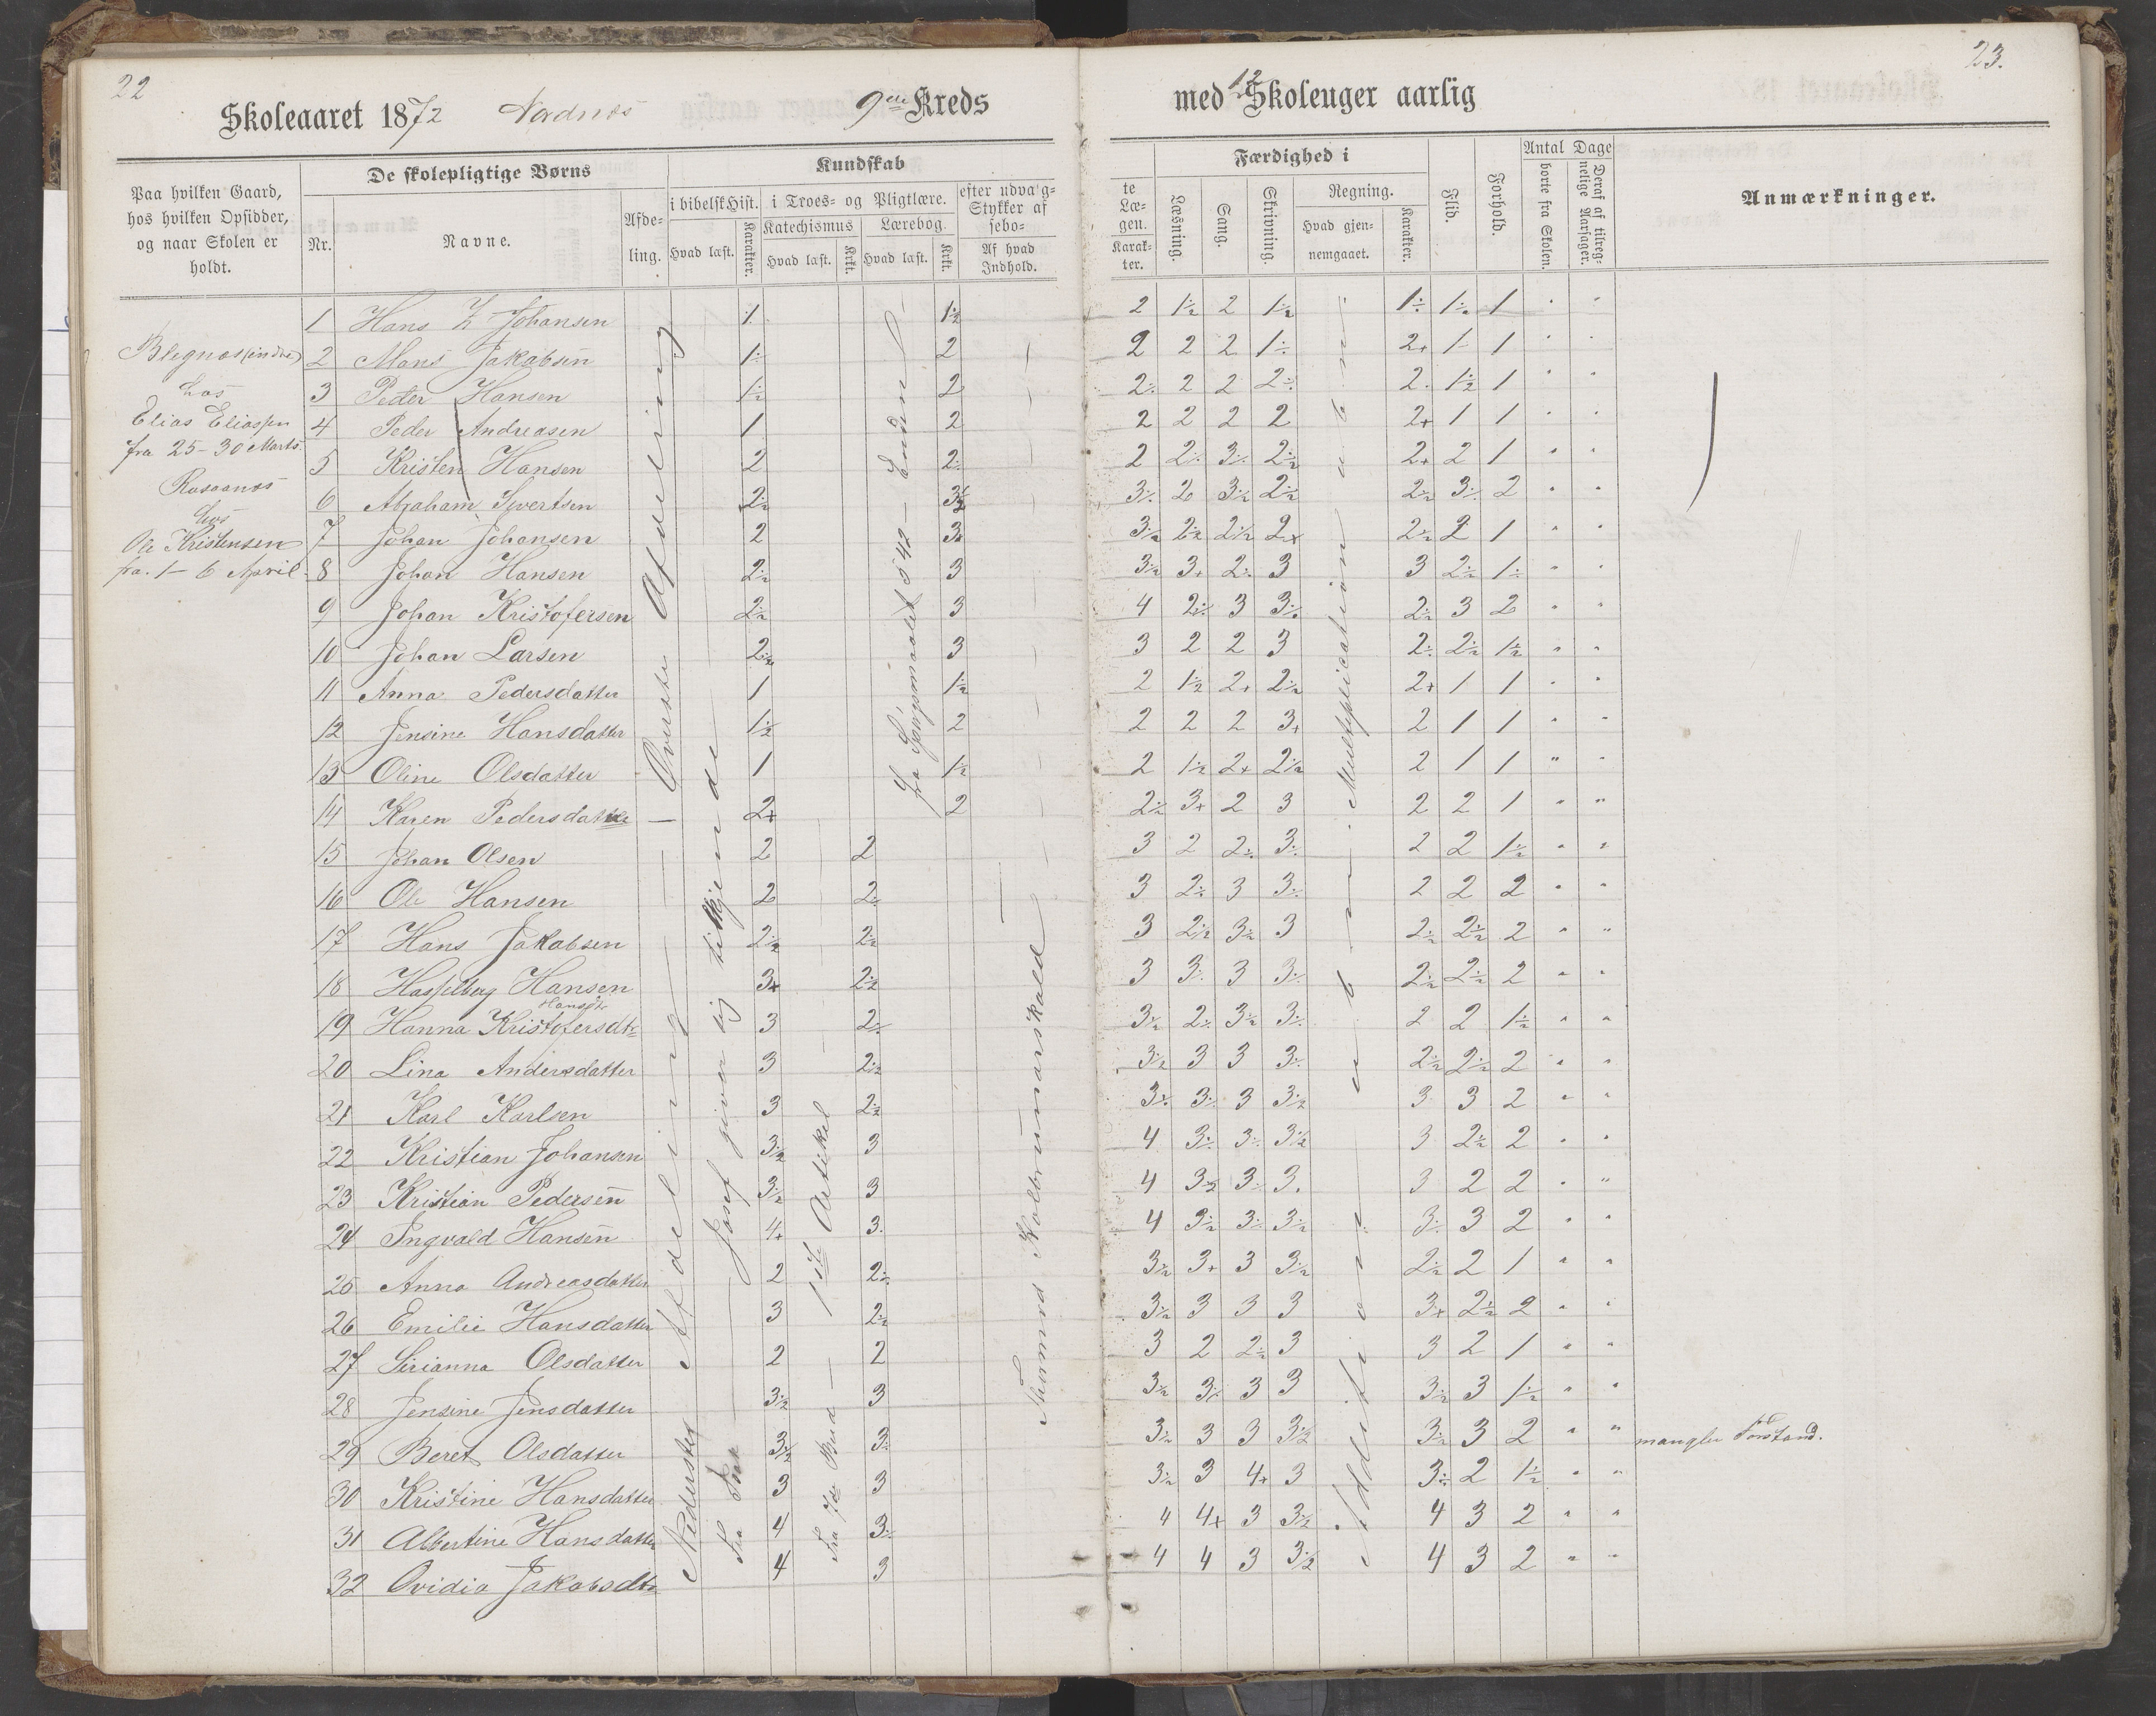 22
23.
Skoleaaret 1872 Nordnæs 9de Kreds
med 12 Skoleuger aarlig
Paa hvilken Gaard, hos hvilken Opsidder, og naar Skolen er holdt.
De skolepligtige Børns
Nr.
Navne.
Afdeling.
Kundskab
i bibelsk Hist.
Hvad læst.
Karakter.
i Troes- og Pligtlære.
Katechismus
Hvad læst.
Krkt.
Lærebog.
Hvad læst.
Krkt.
efter udva'g-
Stykker af
sebo-
Af hvad
Indhold.
te
Læ-
gen.
Karak-
ter.
Færdighed i
Læsning.
Sang.
Skrivning.
Regning.
Hvad gjen-
nemgaaet.
Karakter.
Flid.
Forhold.
Antal Dage
borte fra Skolen.
Deraf af tilreg-
nelige Aarsager.
Anmærkninger.
Blegnæs (indre)
hos
Elias Eliassen
fra 25-30 Marts.
hos
Ole Kristensen
fra. 1-6 April.
Øverste Afdeling
Nederste Afdeling
Josef giver sig tilkjende
1ste Artikel
fra Spørgsmaalet 542 - Enden
Multiplication
Addition
1 Hans Z Johansen 1. 1½ 2 1½ 2 1½ 1÷ 1½ 1
2 Mons Jakobsen 1÷ 2 2 2 2 1÷ 2+ 1- 1
3 Peder Hansen 1½ 2 2÷ 2 2 2÷ 2. 1½ 1
4 Peder Andreasen 1 2 2 2 2 2 2+ 1 1
5 Kristen Hansen 2 2÷ 2 2÷ 3÷ 2½ 2+ 2 1
6 Abraham Sivertsen 2½ 3½ 3÷ 2 3½ 2½ 2½ 3÷ 2
7 Johan Johansen 2 3+ 3½ 2½ 2½ 2+ 2½ 2 1
8 Johan Hansen 2½ 3 3½ 3+ 2÷ 3 3 2½ 1÷
9 Johan Kristofersen 2½ 3 4 2÷ 3 3÷ 2½ 3 2
10 Johan Larsen 2½ 3 3 2 2 3 2÷ 2½ 1½
11 Anna Pedersdatter 1 1½ 2 1½ 2+ 2½ 2+ 1 1
12 Jensine Hansdatter 1½ 2 2 2 2 3+ 2 1 1
13 Oline Olsdatter 1 1½ 2 1½ 2+ 2½ 2 1 1
14 Karen Pedersdatter 2+ 2 2÷ 3+ 2 3 2 2 1
15 Johan Olsen 2 2 3 2 2÷ 3÷ 2 2 1½
16 Ole Hansen 2 2÷ 3 2÷ 3 3÷ 2 2 2
17 Hans Jakobsen 2½ 2½ 3 2½ 3½ 3 2½ 2½ 2
18 Hasselberg Hansen 3+ 2½ 3 3÷ 3 3÷ 2½ 2½ 2
Hansdtr
19 Hanna Kristofersdtr 3 2÷ 3½ 2÷ 3½ 3÷ 2 2 1½
20 Lina Andersdatter 3 2½ 3½ 3 3 3÷ 2½ 2½ 2
21 Karl Karlsen 3 2½ 3÷ 3÷ 3 3½ 3 3 2
22 Kristian Johansen 3½ 3 4 3÷ 3÷ 3½ 3 2½ 2
23 Kristian Pedersen 3½ 3 4 3½ 3÷ 3. 3 2 2
24 Ingvald Hansen 4+ 3. 4 3½ 3÷ 3½ 3÷ 3 2
25 Anna Andreasdatter 2 2÷ 3½ 3+ 3 3½ 2½ 2 1
26 Emilie Hansdatter 3 2½ 3½ 3 3 3 3+ 2½ 2
27 Sirianna Olsdatter 2 2 3 2 2½ 3 3 2 1
28 Jensine Jensdatter 3½ 3 3½ 3÷ 3 3 3½ 3 1½
29 Beret Olsdatter 3½ 3÷ 3½ 3 3 3½ 3½ 3 2 mangler Forstand.
30 Kristine Hansdatter 3 3 3½ 3 4+ 3 3÷ 2 1½
31 Albertine Hansdatter 4 3÷ 4 4+ 3 3½ 4 3 2
32 Ovidia Jakobsdtr 4 3 4 4 3 3½ 4 3 2